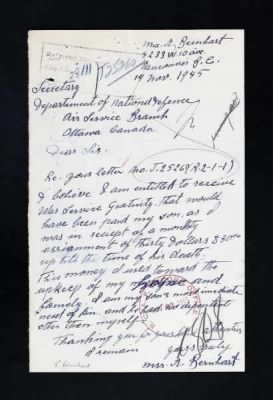 Mrs. A. Bernhart
4233 W. 10 Ave.
Vancouver B.C.
19 Nov. 1945
Secretary
Department of National Defence
Air Service Branch
Ottawa Canada
Dear Sir.
Re: your letter No. J.25269 (R2-1-1)
I believe I am entitled to receive
War Service Gratuity that would
have been paid my son, as I
was in receipt of a monthly
assignment of thirty dollars $30.00
up to the time of his death.
This money I used toward the
upkeep of my home and
family. I am my son's most immediate
next of kin and he had no dependent
other than myself.
Thanking you for
I remain
yours truly
Mrs. A. Bernhart